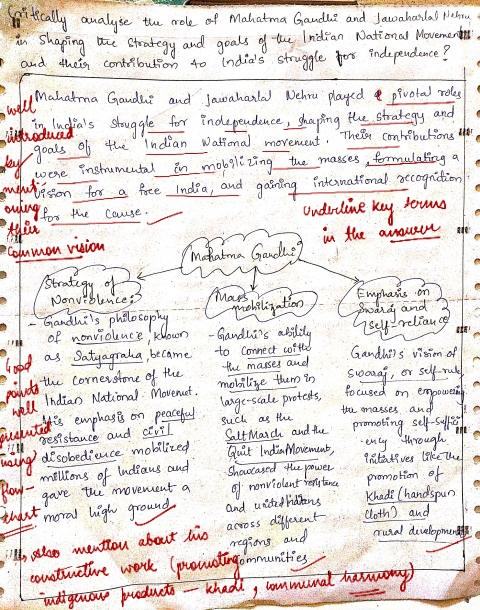 Critically analyse the role of Mahatma Gandhi and Jawaharlal Nehru
in shaping the strategy and goals of the Indian National Movement
and their contribution to India's struggle for independence?
Mahatma Gandhi and Jawaharlal Nehru played a pivotal roles
in India's struggle for independence, shaping the strategy and
goals of the Indian National movement. Their contributions
were instrumental in mobilizing the masses, formulating a
vision for a free India, and gaining international recognition
for the cause.
well
introduced
by
menti
oning
their
common vision
Underline key terms
in the answer
Mahatma Gandhi
Strategy of
Nonviolence:
- Gandhi's philosophy
of nonviolence, known
as Satyagraha, became
the cornerstone of the
Indian National Movement.
His emphasis on peaceful
resistance and civil
disobedience mobilized
millions of Indians and
gave the movement a
moral high ground
Mass
mobilization
- Gandhi's ability
to connect with
the masses and
mobilize them in
large-scale protests,
such as the
Salt March and the
Quit India Movement,
showcased the power
of nonviolent resistance
and united
across different
regions and
communities
Emphasis on
Swaraj and
self-reliance
Gandhi's vision of
Swaraj, or self-rule
focused on empowering
the masses and
promoting self-suffici
-ency through
initiatives like the
promotion of
Khadi (handspun
cloth) and
rural development
Good
points
well
presented
using
flow-
chart
also mention about his
constructive work (promoting
indigenous products - khadi, communal harmony)